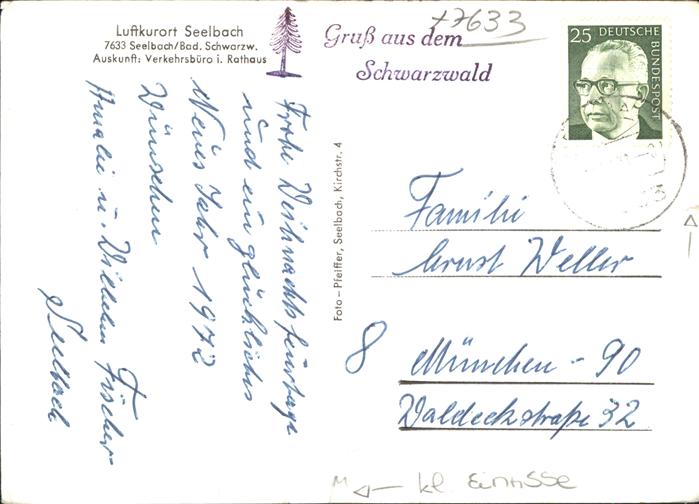 Luftkurort Seelbach
7633 Seelbach/Bad. Schwarzw.
Auskunft: Verkehrsbüro i. Rathaus
Gruß aus dem
Schwarzwald
7633
25 DEUTSCHE
BUNDESPOST
Frohe Weihnachtsfeiertage
und ein glückliches
Neues Jahr 1972
Wünschen
Amalie u. Wilhelm Fischer
Seelbach
Foto – Pfeiffer, Seelbach, Kirchstr. 4
Familie
Ernst Weller
8 München - 90
Waldeckstraße 32
kl EinrisSe